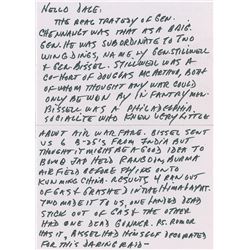 HELLO DALE:
THE REAL TRAGEDY OF GEN.
CHENNAULT WAS THAT AS A BRIG.
GEN. HE WAS SUBORDINATE TO TWO
WING DINGS, NAMELY GEN. STILLWELL
+ GEN. BISSEL. STILLWELL WAS A
CO-HORT OF DOUGLAS MCARTHO, BOTH
OF WHOM THOUGHT ANY WAR COULD
ONLY BE WON BY INFANTRYMEN.
BISSELL WAS A PHILADELPHIA,
SOCIALITE WHO KNEW VERY LITTLE
ABOUT AIR WARFARE. BISSEL SENT
US 6 B-25's FROM INDIA BUT
THOUGHT IT MIGHT BE A GOOD IDEA TO
BOMB JAP HELD RANGOON, BURMA
AIRFIELD BEFORE FLYING ON TO
KUNMING CHINA. RESULTS, 4 RAN OUT
OF GAS & CRASHED IN THE HIMALAYAS.
TWO MADE IT TO US, ONE LANDED DEAD
STICK OUT OF GAS & THE OTHER
HAD ONE DEAD GUNNER. AS RUMOR
HAS IT, BISSEL HAD HIMSELF DECORATED
FOR THIS DARING RAID-